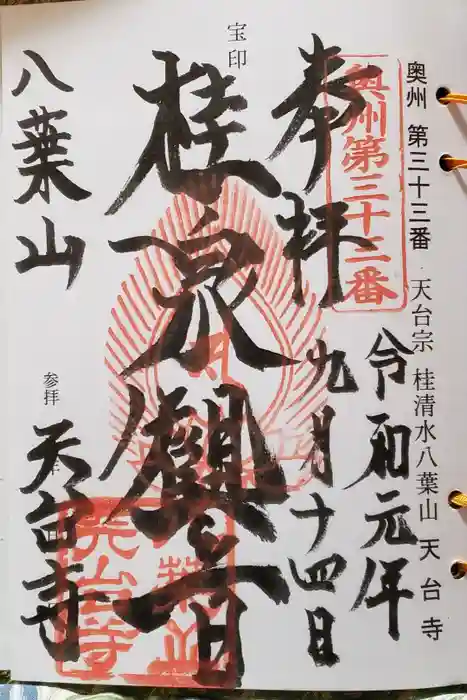 奥州 第三十三番 天台宗 桂清水八葉山 天台寺
奥州第三十三番
奉拝
令和元年
九月十四日
宝印
桂泉觀音
八葉山
参拝
天台寺
八葉山
天台寺